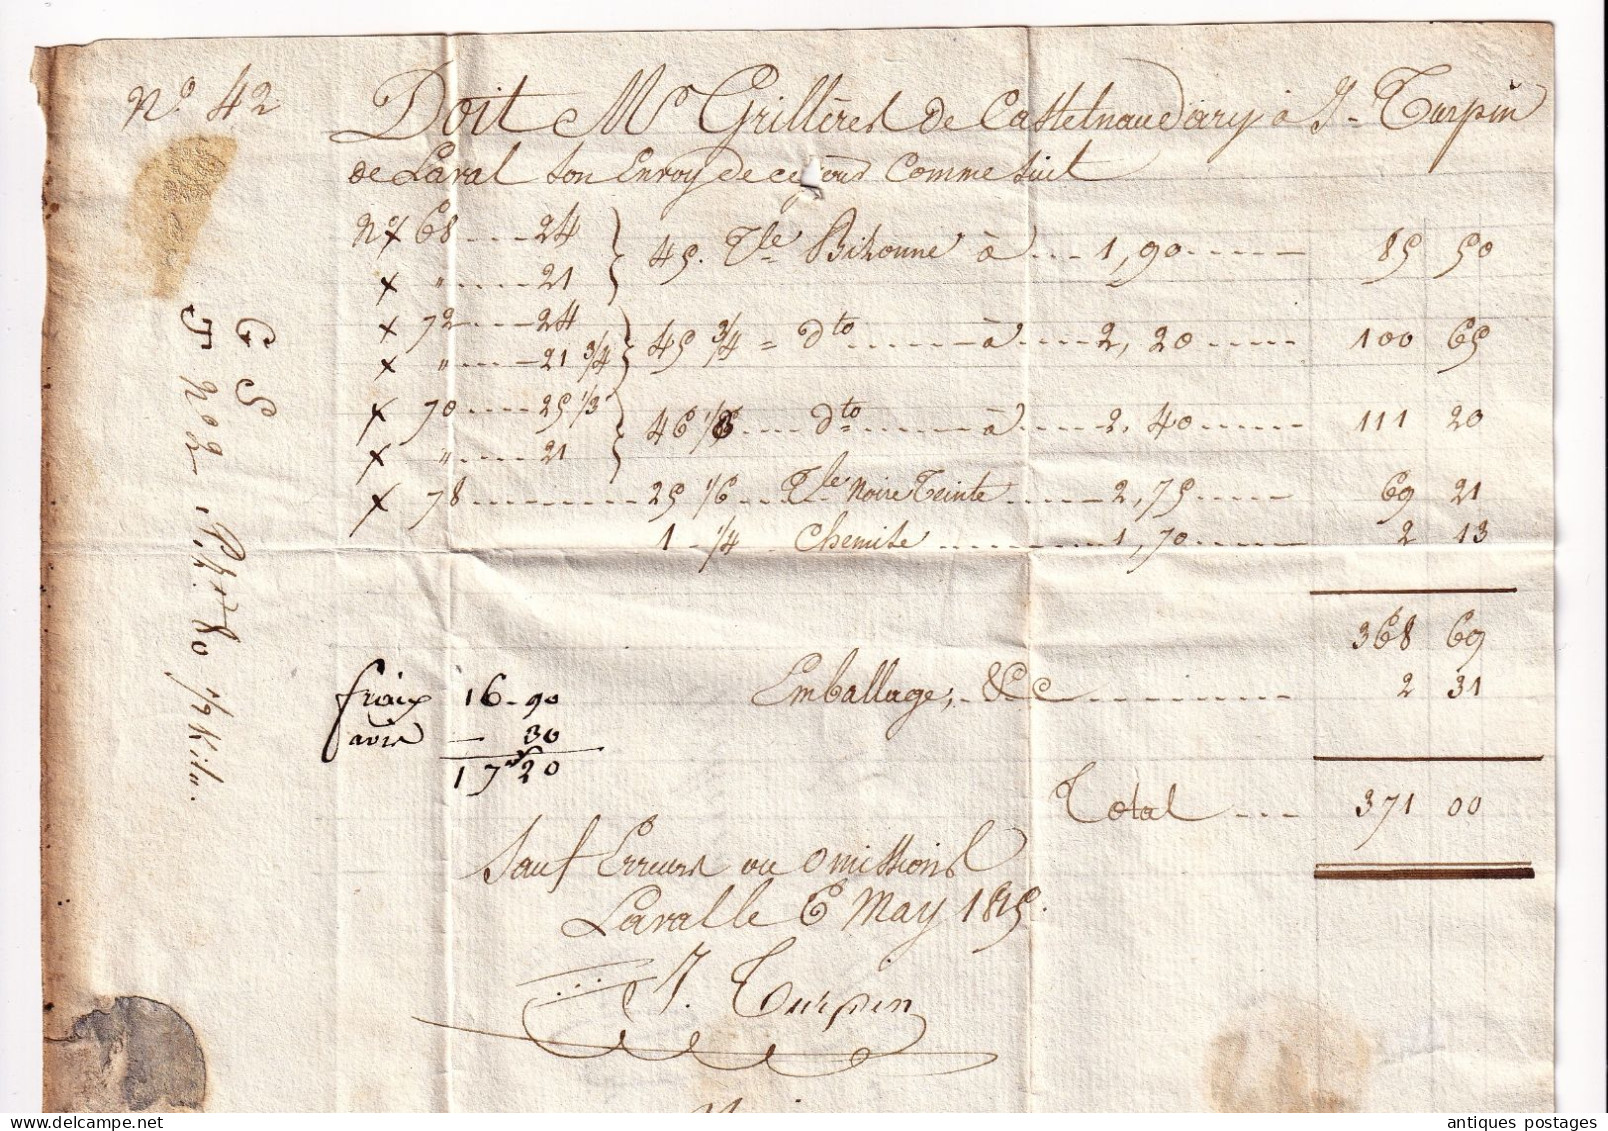 N.º 42
Doit Mr Grillères de Castelnaudary à J. Turpin
de Laval son Envoy de ce jour Comme suit
Nº 68 .... 24
x " .... 21
45. Tle Bizonne à ... 1,90 ...... 85 50
x 72 .... 24
x " .... 21 3/4
45 3/4 = dto ...... à .... 2,20 ..... 100 65
x 70 .... 25 1/3
x " .... 21
46 1/3 .... dto ...... à .... 2,40 ..... 111 20
x 78 ........ 25 1/6 ... Tle Noire Teinte ..... 2,75 ..... 69 21
1 1/4 Chemise ........ 1,70 ..... 2 13
368 69
Emballage, &c ....... 2 31
fraix 16-90
avis — 30
17 20
Total ... 371 00
Sauf Erreurs ou omissions
Laval le 6 May 1815.
J. Turpin
G S
T Nº 2
antiques postages